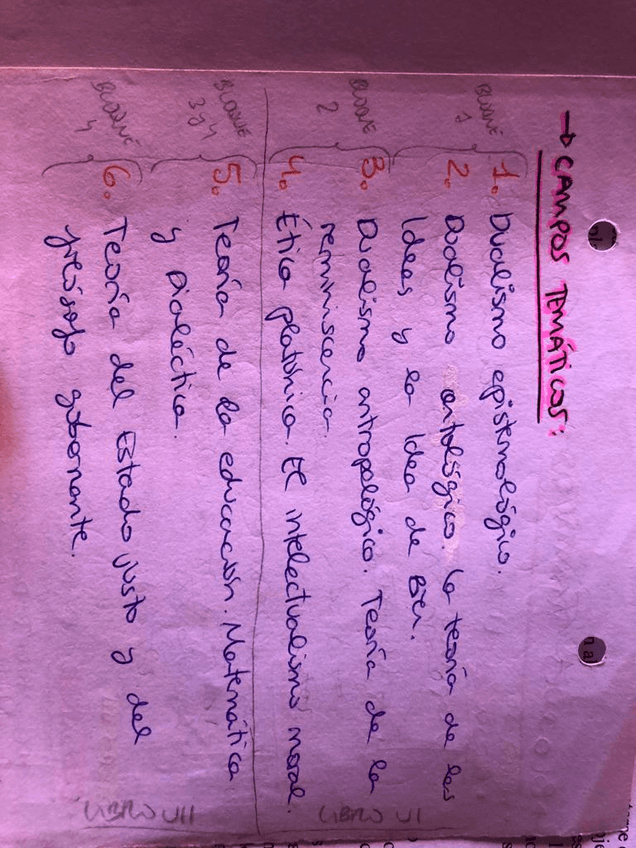 → CAMPOS TEMÁTICOS:
BLOQUE 1
1. Dualismo epistemológico.
2. Dualismo ontológico. La teoría de las
Ideas y la Idea de Bien.
BLOQUE 2
3. Dualismo antropológico. Teoría de la
reminiscencia.
4. Ética platónica. El intelectualismo moral.
LIBRO VI
BLOQUE 3 y 4
5. Teoría de la educación. Matemática
y Dialéctica.
BLOQUE 4
6. Teoría del Estado justo y del
filósofo gobernante.
LIBRO VII